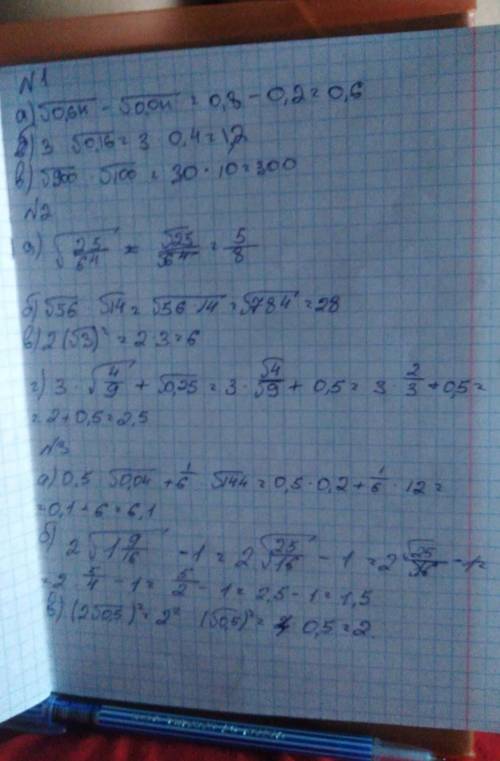 №1
а) √0,64 - √0,04 = 0,8 - 0,2 = 0,6
б) 3 √0,16 = 3 · 0,4 = 1,2
в) √900 · √100 = 30 · 10 = 300
№2
а) √(25/64) = √25/√64 = 5/8
б) √56 · √14 = √56·14 = √784 = 28
в) 2(√3)² = 2·3 = 6
г) 3 · √(4/9) + √0,25 = 3 · √4/√9 + 0,5 = 3 · 2/3 + 0,5 =
= 2 + 0,5 = 2,5
№3
а) 0,5 √0,04 + 1/6 √144 = 0,5 · 0,2 + 1/6 · 12 =
= 0,1 + 6 = 6,1
б) 2 √(1 9/16) - 1 = 2 √(25/16) - 1 = 2 √25/√16 - 1 =
= 2 5/4 - 1 = 5/2 - 1 = 2,5 - 1 = 1,5
в) (2√0,5)² = 2² (√0,5)² = 4 0,5 = 2.